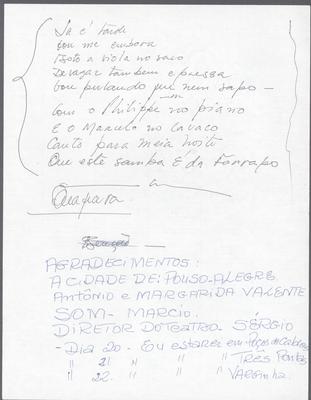 Já é tarde
vou me embora
Boto a viola no saco
Devagar também é pressa
Vou pulando que nem sapo -
Com o Philippe no piano
E o Marcelo no Cavaco
Canto para meia noite
Que este samba É da
AGRADECIMENTOS:
A CIDADE DE: POUSO-ALEGRE
ANTÔNIO e MARGARIDA VALENTE
SOM - MARCIO.
DIRETOR DO TEATRO. SÉRGIO
- Dia 20. Eu estarei em Poços de Caldas
" 21 " " TRÊS Pontas
" 22. " " VARginha.